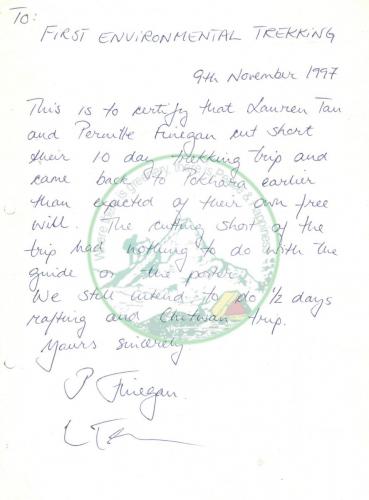 TO:
FIRST ENVIRONMENTAL TREKKING
9th November 1997
This is to certify that Lauren Tan
and Pernille Finegan cut short
their 10 day trekking trip and
came back to Pokhara earlier
than expected of their own free
will. The cutting short of the
trip had nothing to do with the
guide or the porter.
We still intend to do 1/2 days
rafting and Chitwan trip.
Yours sincerely
P Finegan.
L Tan